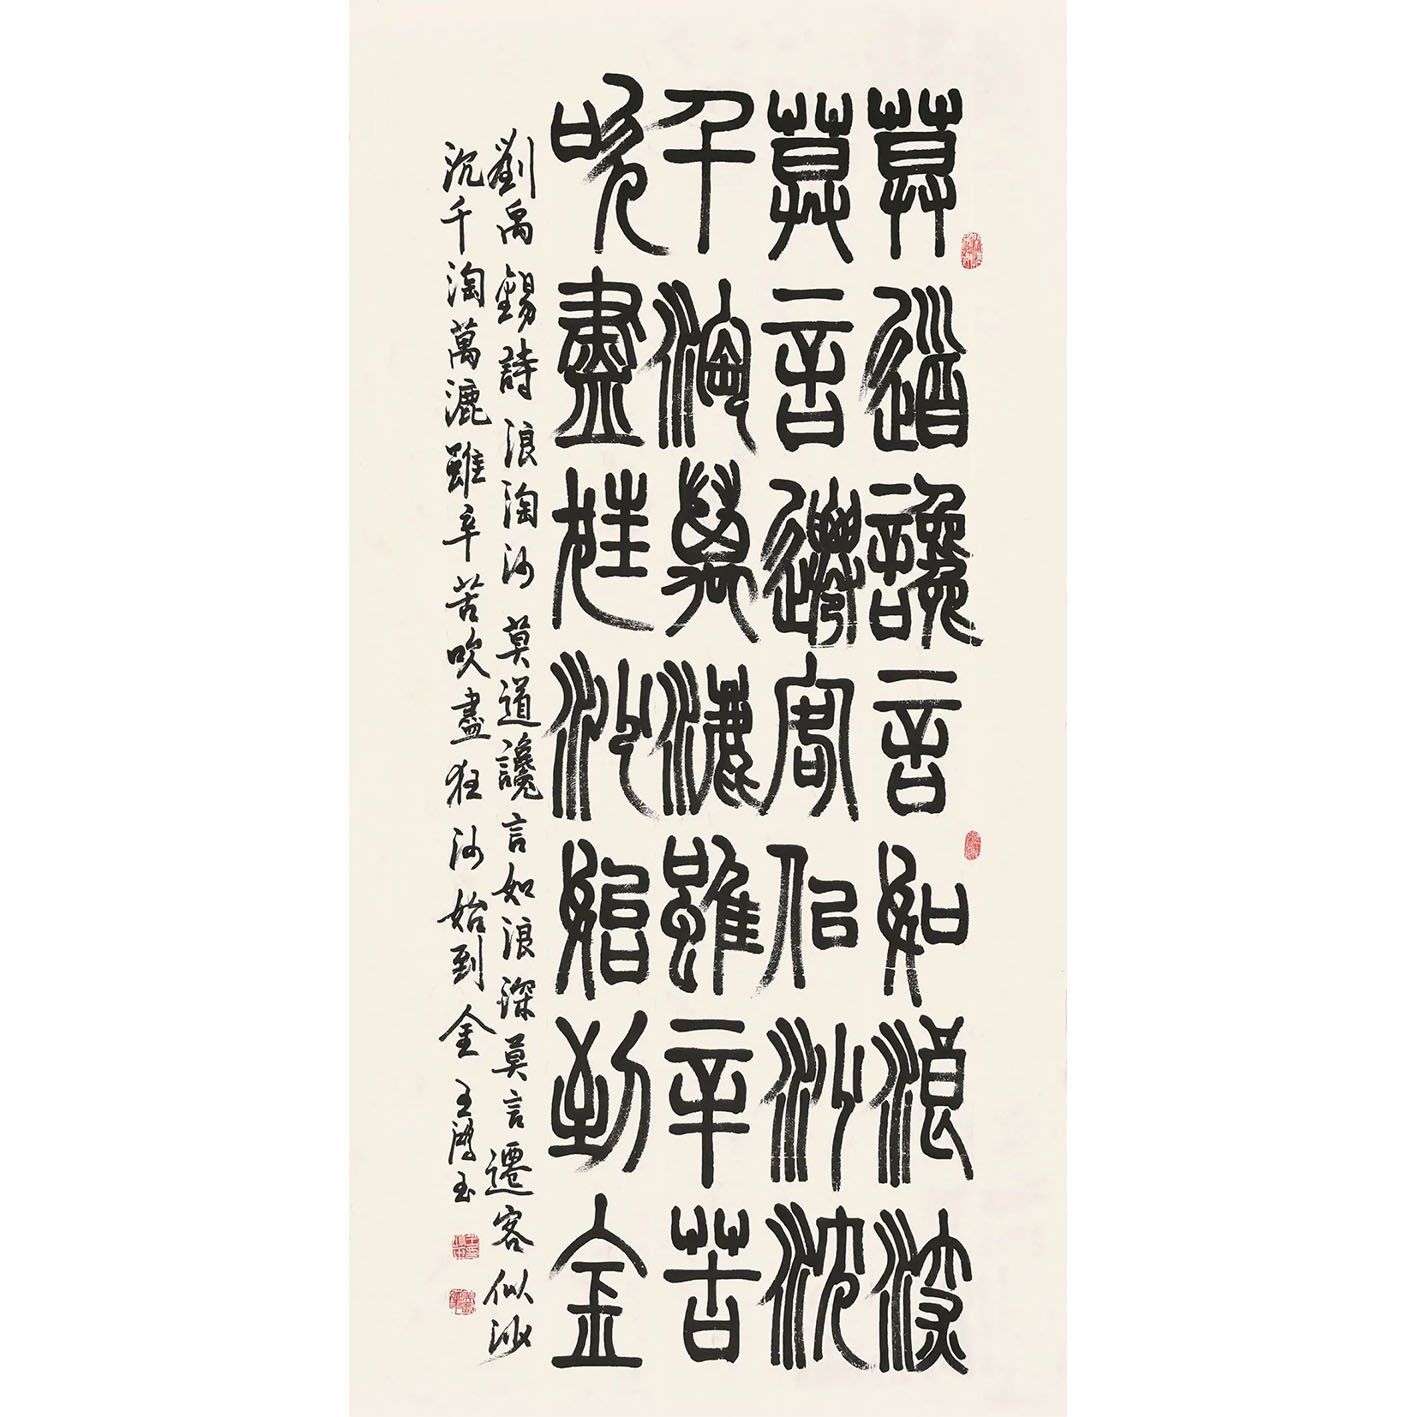 莫道讒言如浪深
莫言遷客似沙沈
千淘萬漉雖辛苦
吹盡狂沙始到金
劉禹錫詩浪淘沙莫道讒言如浪深莫言遷客似沙
沉千淘萬漉雖辛苦吹盡狂沙始到金王鴻玉